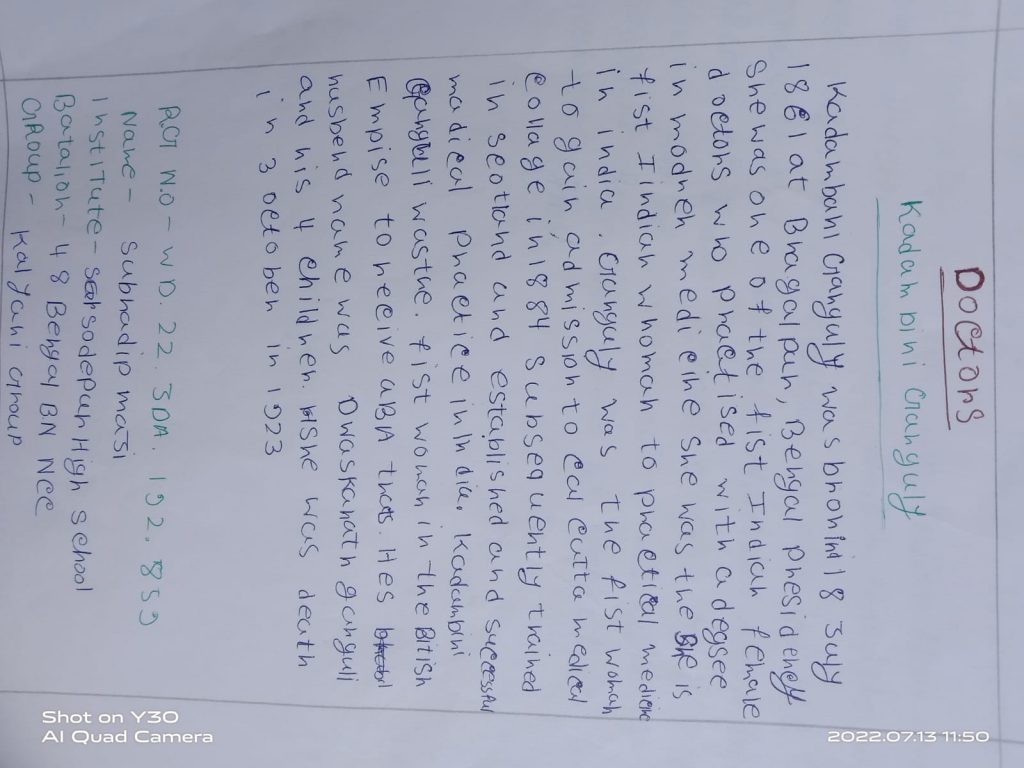 Doctons
Kadambini Ganguly
Kadambani Ganguly was bhonin 18 July
1861 at Bhagalpur, Bengal presidency
She was one of the fist Indian female
doctons who practised with a degsee
in modneh medicine She was the is
fist Iindian whoman to practical medicine
in india. Ganguly was the fist woman
to gain admission to calcutta medical
collage in 1884 Subsequently trained
in Scotland and established and successful
madical practice in India. Kadambini
Ganguli wasthe. fist woman in the Bitish
Empise to neceive a BA thes. Hes
husbend name was Dwaskanath ganguli
and his 4 children. She was death
in 3 octoben in 1923
RGT N.O - WD. 22. SDA. 192. 859
Name - Subhadip matsi
Institute - Sodepuh High School
Batalion - 48 Bengal BN Ncc
GRoup - Kalyani Group
Shot on Y30
AI Quad Camera
2022.07.13 11:50